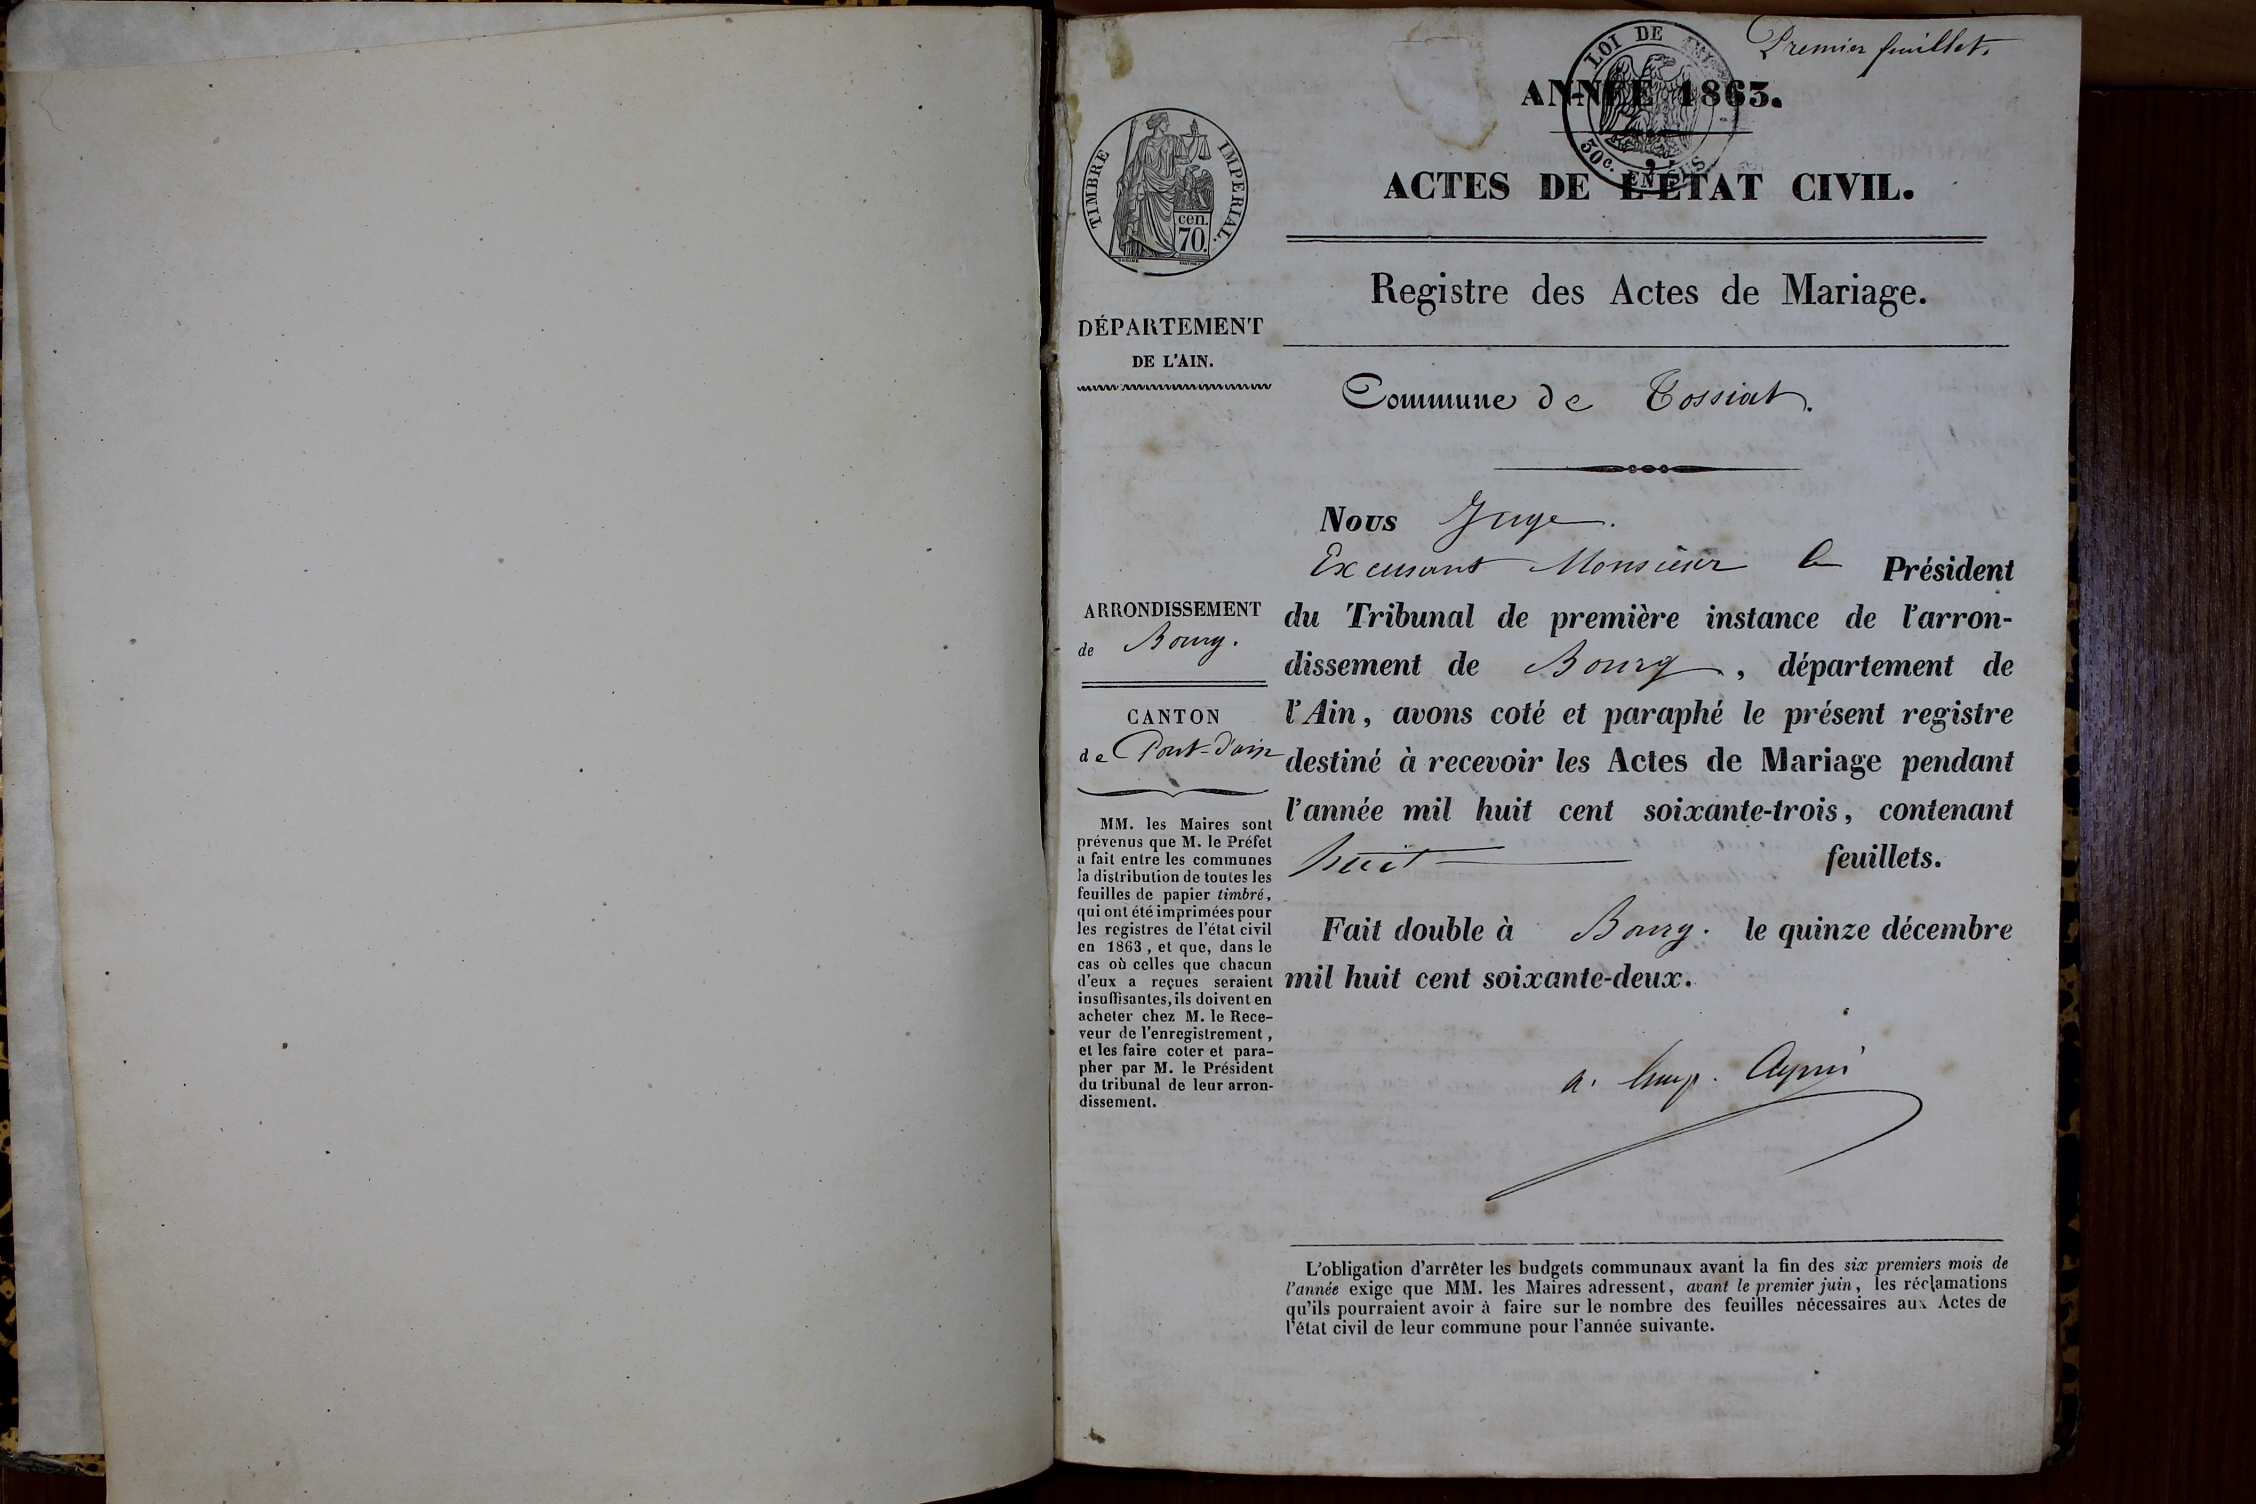 Premier feuillet.
LOI DE
30c. EN SUS
ANNÉE 1863.
ACTES DE L'ÉTAT CIVIL.
TIMBRE IMPERIAL.
cen.
70.
Registre des Actes de Mariage.
DÉPARTEMENT
DE L'AIN.
Commune de Tossiat.
Nous Juge.
Excusant Monsieur le Président
du Tribunal de première instance de l'arron-
dissement de Bourg, département de
l'Ain, avons coté et paraphé le présent registre
destiné à recevoir les Actes de Mariage pendant
l'année mil huit cent soixante-trois, contenant
huit feuillets.
Fait double à Bourg. le quinze décembre
mil huit cent soixante-deux.
ARRONDISSEMENT
de Bourg.
CANTON
de Pont-d'ain
MM. les Maires sont
prévenus que M. le Préfet
a fait entre les communes
la distribution de toutes les
feuilles de papier timbré,
qui ont été imprimées pour
les registres de l'état civil
en 1863, et que, dans le
cas où celles que chacun
d'eux a reçues seraient
insuffisantes, ils doivent en
acheter chez M. le Rece-
veur de l'enregistrement,
et les faire coter et para-
pher par M. le Président
du tribunal de leur arron-
dissement.
L'obligation d'arrêter les budgets communaux avant la fin des six premiers mois de
l'année exige que MM. les Maires adressent, avant le premier juin, les réclamations
qu'ils pourraient avoir à faire sur le nombre des feuilles nécessaires aux Actes de
l'état civil de leur commune pour l'année suivante.